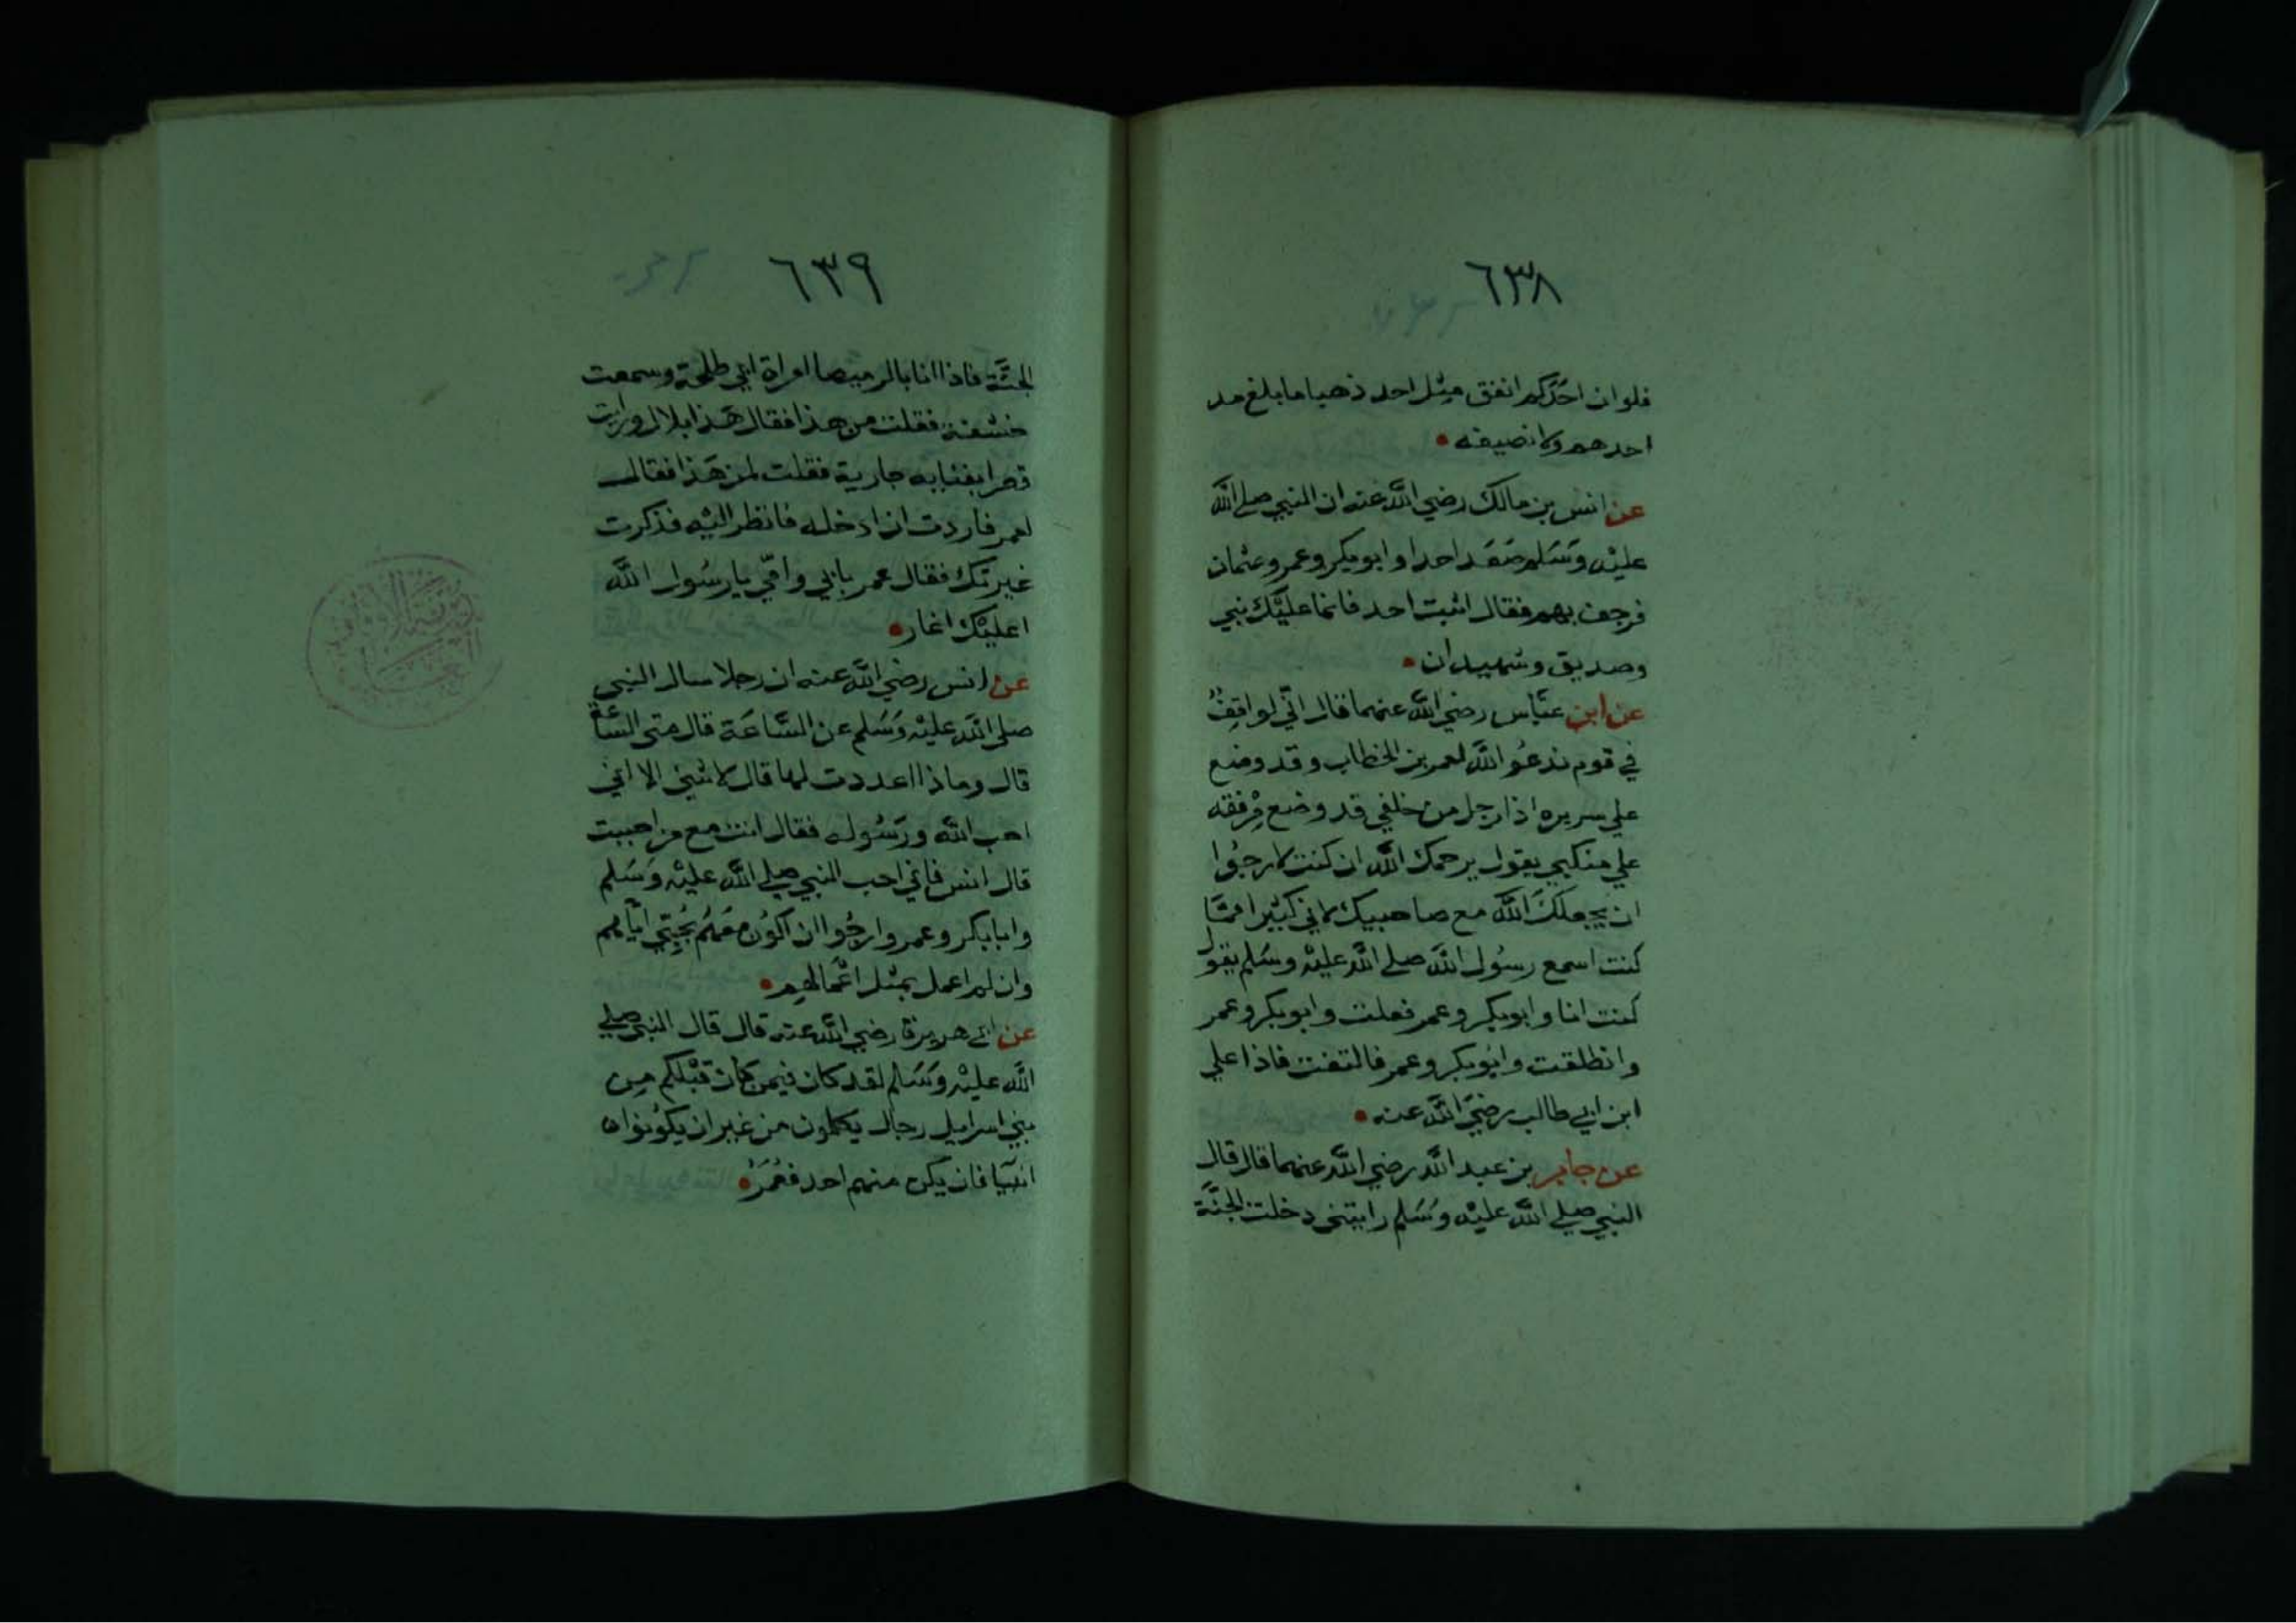 ٦٣٨
فلوان احَدَكم انفق مِثل احد ذهبا ما بلغ مد
احدهم ولا نصيفه
عن انس بن مالك رضي اللَّه عنه ان النبي صلى اللَّه
عليْه وَسَلم صَعَد احدا وابو بكر وعمر وعثمان
فرجف بهم فقال اثبت احد فانما عليْك نبي
وصديق وشهيدان
عن ابن عبَّاس رضي اللَّه عنهما قال انّي لواقِفٌ
في قوم ندعُو اللَّه لعمر بن الخطاب وقد وضع
علي سريره اذا رجل من خلفي قد وضع مِرْفقه
علي منكبي يقول يرحمك اللَّه ان كنت لارجُوا
ان يجعلكَ اللَّه مع صاحبيك لاني كثيرا ممَّا
كنت اسمع رسُول اللَّه صلي اللَّه عليْه وسَلم يقول
كنت انا وابو بكر وعمر فعلت وابو بكر وعمر
وانطلقت وابُو بكر وعمر فالتفت فاذا علي
ابن ابي طالب رضيَ اللَّه عنه
عن جابر بن عبد اللَّه رضي اللَّه عنهما قال قال
النبي صلي اللَّه عليْه وَسَلم رايتني دخلت الجنَّة
٦٣٩
الجنَّة فاذا انا بالرميصا امراة ابي طلحة وسمعت
خشفة فقلت من هذا فقال هَذا بلال ورايت
قصرا بفنايه جارية فقلت لمن هَذا فقال
لعمر فاردت ان ادخله فانظر اليْه فذكرت
غيرتك فقال عمر بابي وامّي يا رسُول اللَّه
اعليْك اغار
عن انس رضي اللَّه عنه ان رجلا سال النبي
صلى اللَّه عليْه وَسَلم عن السَّاعَة قال متى السَّاعَة
قال وماذا اعددت لها قال لا شيئ الا اني
احب اللَّه ورَسُوله فقال انت مع من احببت
قال انس فاني احب النبي صلي اللَّه عليْه وَسَلم
وابا بكر وعمر وارجُوا ان اكُون مَعَهُم بحُبِّي ايّاهم
وان لم اعمل بمثل اعْمالهم
عن ابي هريرة رضي اللَّه عنه قال قال النبي صلي
اللَّه عليْه وَسَلم لقد كان فيمن كان قبْلكم مِن
بني اسرايل رجال يكلمون من غير ان يكُونوا
انبيَا فان يكن منهم احد فعُمَرُ